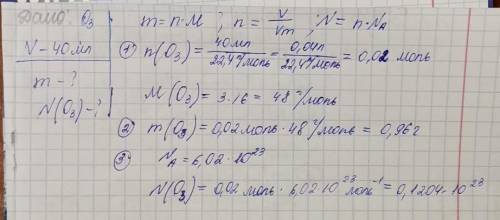 Дано: O₃
V - 40мл
m - ?
N(O₃) - ?
m = n · M ; n = V/Vm ; N = n · NA
1) n(O₃) = 40мл/22,4л/моль = 0,04л/22,4л/моль = 0,02 моль
M(O₃) = 3 · 16 = 48 г/моль
2) m(O₃) = 0,02 моль · 48 г/моль = 0,96г
3) NA = 6,02 · 10²³
N(O₃) = 0,02 моль · 6,02 · 10²³ моль⁻¹ = 0,1204 · 10²³